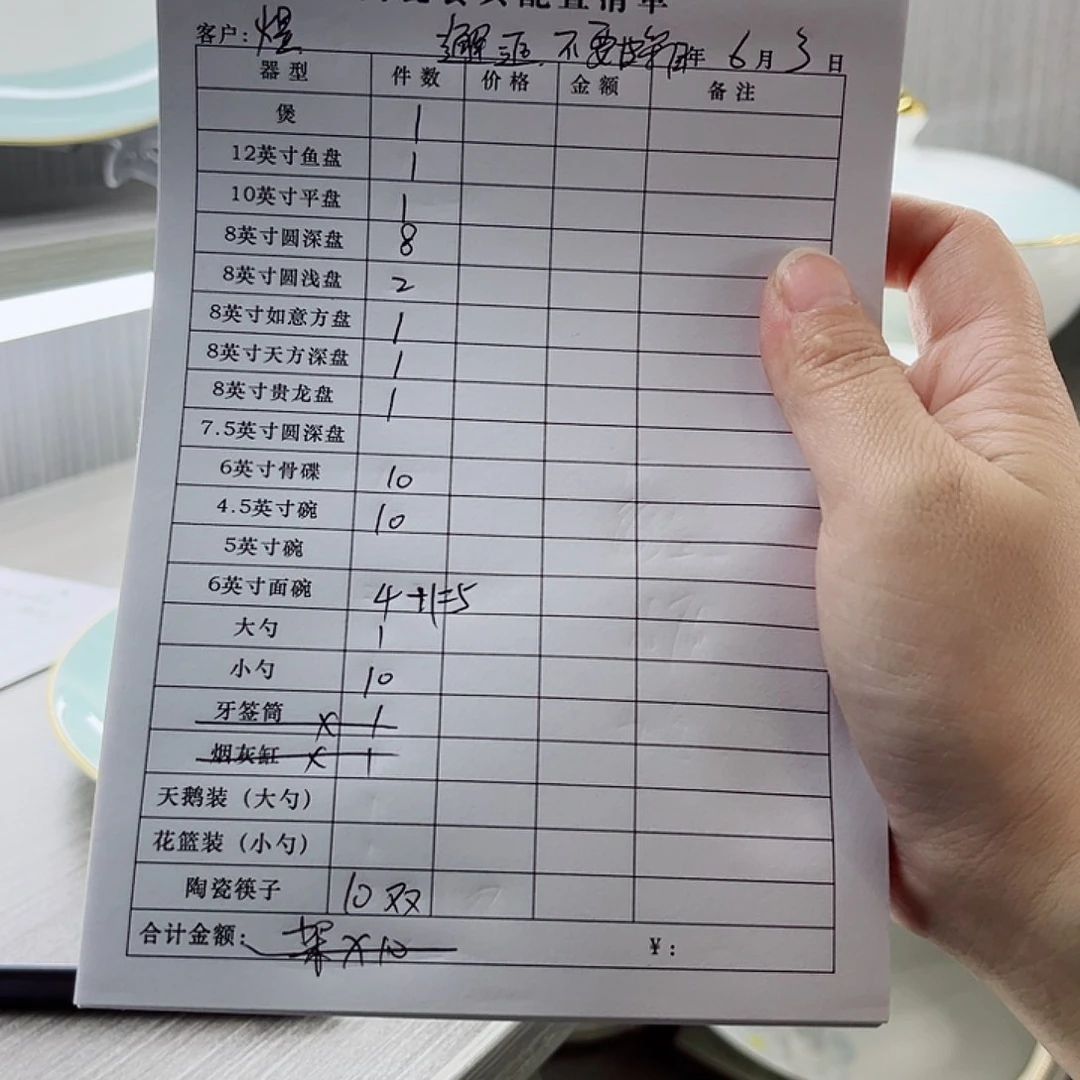 配置清单
客户: 煜 邂逅 不要 年 6 月 3 日
器型 件数 价格 金额 备注
煲 1
12英寸鱼盘 1
10英寸平盘 1
8英寸圆深盘 8
8英寸圆浅盘 2
8英寸如意方盘 1
8英寸天方深盘 1
8英寸贵龙盘 1
7.5英寸圆深盘
6英寸骨碟 10
4.5英寸碗 10
5英寸碗
6英寸面碗 4+1=5
大勺 1
小勺 10
牙签筒 x 1
烟灰缸 x 1
天鹅装（大勺）
花篮装（小勺）
陶瓷筷子 10双
合计金额: x10 ¥: